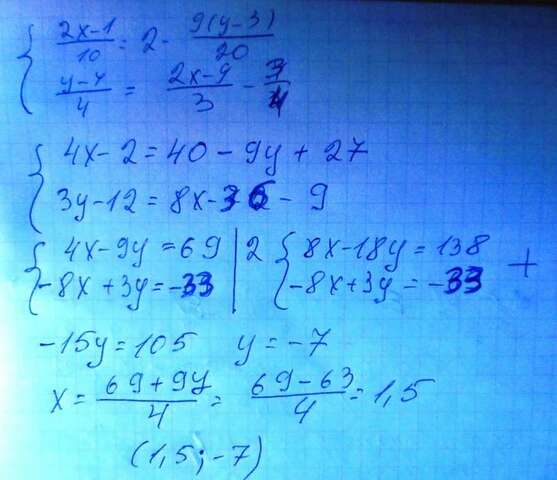 (2x-1)/10 = 2 - 9(y-3)/20
(y-4)/4 = (2x-9)/3 - 3/4
4x - 2 = 40 - 9y + 27
3y - 12 = 8x - 36 - 9
4x - 9y = 69 | 2 8x - 18y = 138 +
-8x + 3y = -33 -8x + 3y = -33
-15y = 105 y = -7
x = (69 + 9y)/4 = (69 - 63)/4 = 1,5
(1,5; -7)